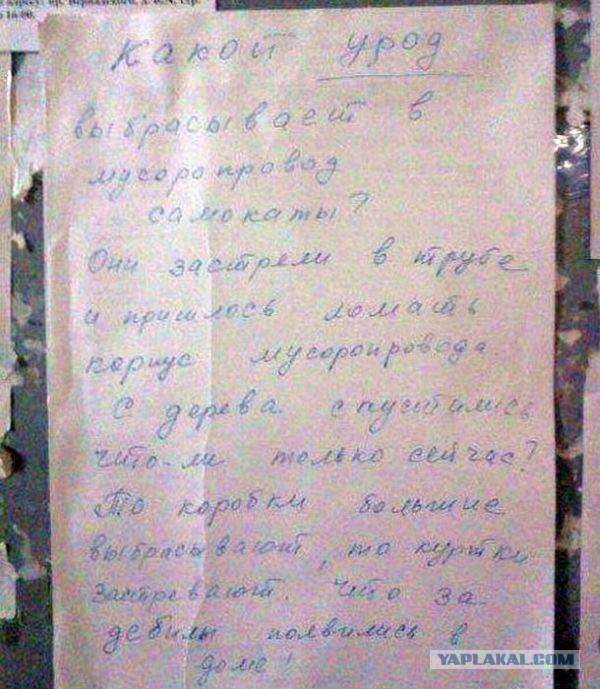 Какой урод
выбрасывает в
мусоропровод
самокаты?
Они застряли в трубе
и пришлось ломать
корпус мусоропровода.
С дерева спустились
что-ли только сейчас?
То коробки большие
выбрасывают, то куртки
застревают. Что за
дебилы появились в
доме!
YAPLAKAL.COM